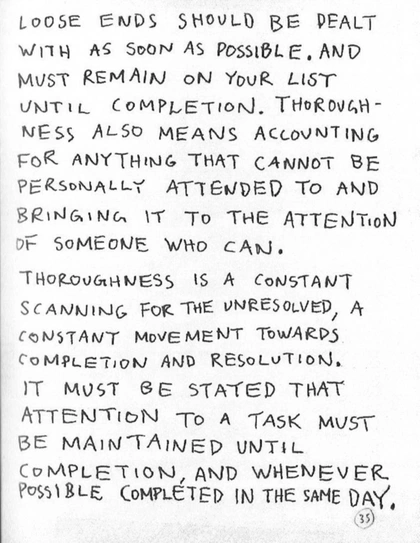 LOOSE ENDS SHOULD BE DEALT
WITH AS SOON AS POSSIBLE. AND
MUST REMAIN ON YOUR LIST
UNTIL COMPLETION. THOROUGH-
NESS ALSO MEANS ACCOUNTING
FOR ANYTHING THAT CANNOT BE
PERSONALLY ATTENDED TO AND
BRINGING IT TO THE ATTENTION
OF SOMEONE WHO CAN.
THOROUGHNESS IS A CONSTANT
SCANNING FOR THE UNRESOLVED, A
CONSTANT MOVEMENT TOWARDS
COMPLETION AND RESOLUTION.
IT MUST BE STATED THAT
ATTENTION TO A TASK MUST
BE MAINTAINED UNTIL
COMPLETION, AND WHENEVER
POSSIBLE COMPLETED IN THE SAME DAY.
35